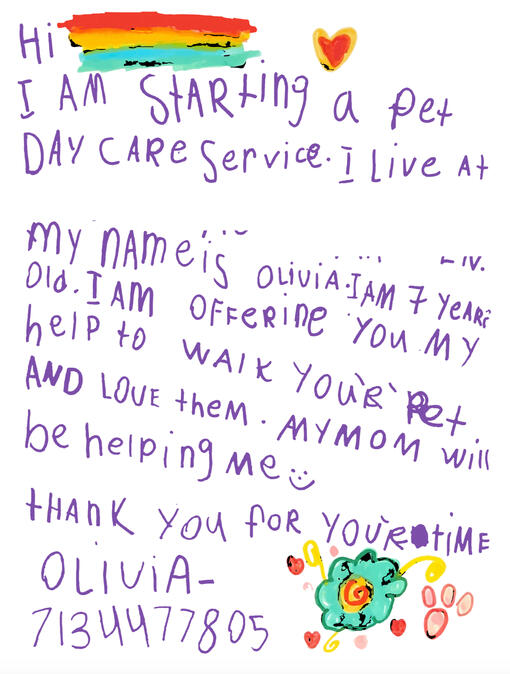 Hi
I AM StARting a Pet
DAY CARe Service. I Live At
MY NAMe is OLiViA. I AM 7 YEARS
Old. I AM OFFeRiNe YOU MY
help to WALK YOU'R Pet
AND LOVE them. MY MOM will
be helping Me
tHANK YOU FOR YOU'R tiME
OLiViA-
7134477805